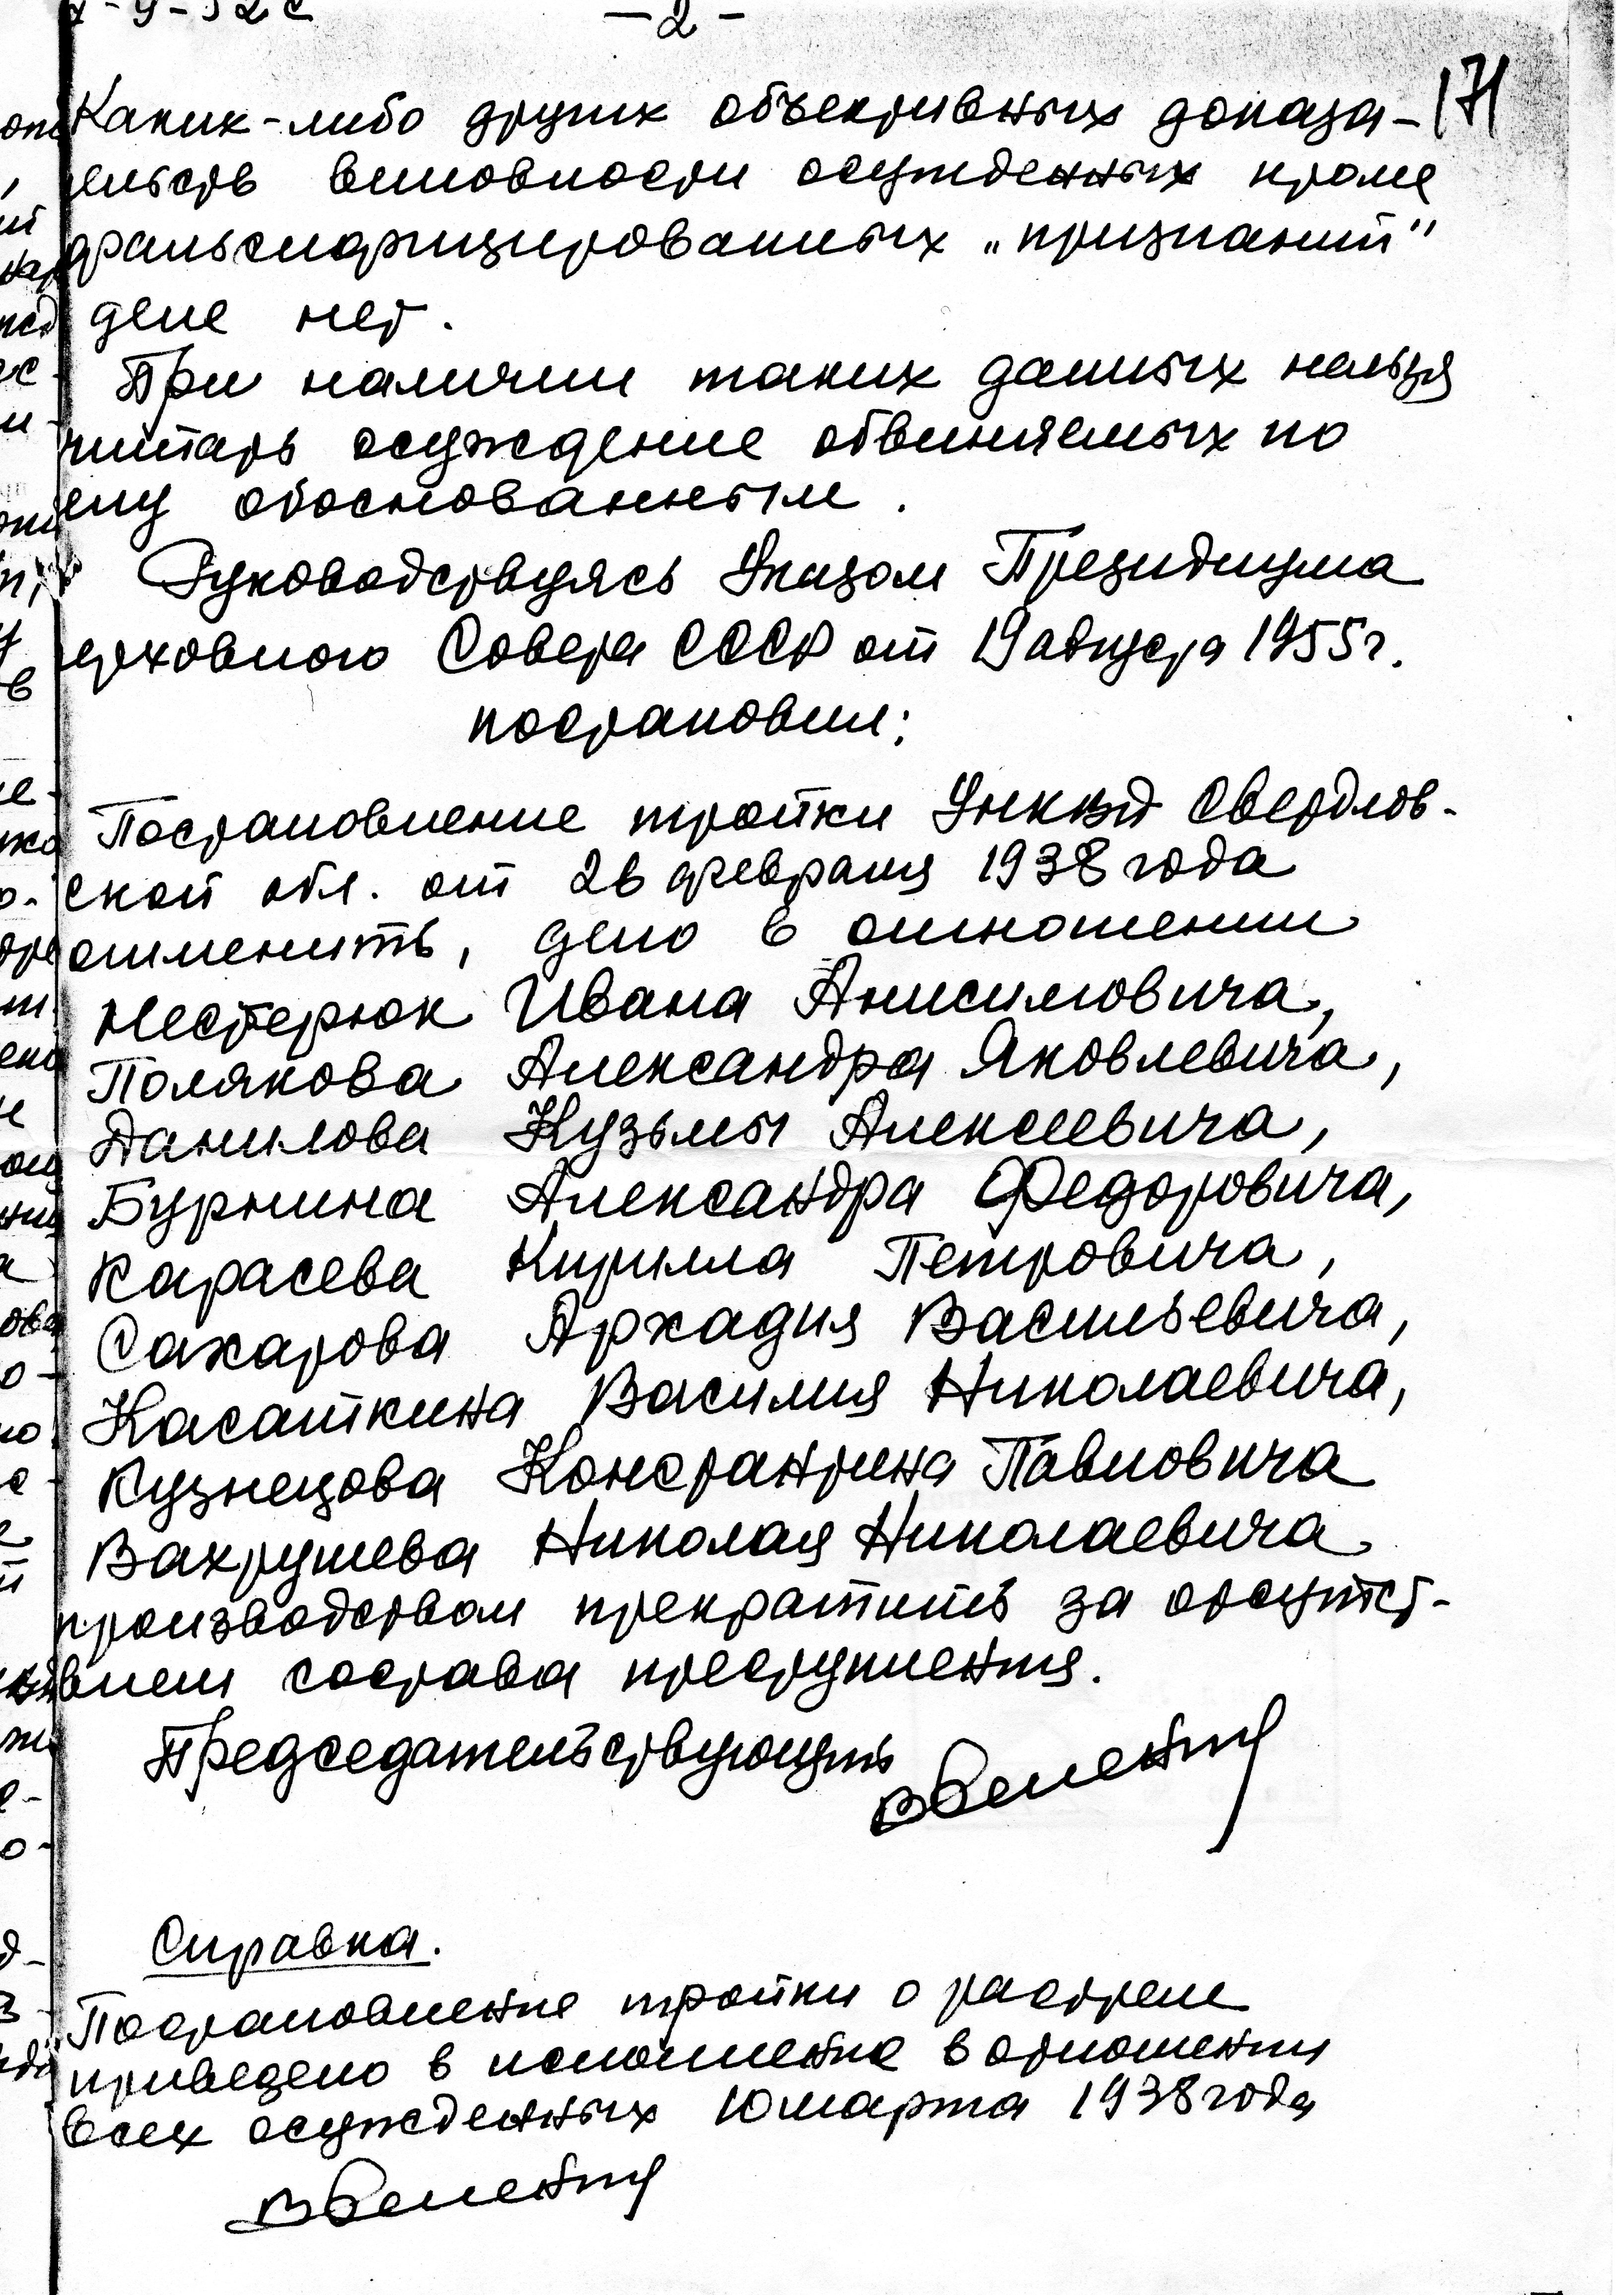 -2-
171
Каких-либо других объективных доказа-
тельств виновности осужденных кроме
фальсифицированных „признаний"
деле нет.
При наличии таких данных нельзя
читать осуждение обвиняемых по
ему обоснованным.
Руководствуясь Указом Президиума
ерховного Совета СССР от 19 августа 1955г.
постановил:
Постановление тройки УНКВД Свердлов-
ской обл. от 26 февраля 1938 года
отменить, дело в отношении
Нестерюк Ивана Анисимовича,
Полякова Александра Яковлевича,
Данилова Кузьмы Алексеевича,
Бурнина Александра Федоровича,
Карасева Кирилла Петровича,
Сахарова Аркадия Васильевича,
Касаткина Василия Николаевича,
Кузнецова Константина Павловича
Вахрушева Николая Николаевича
производством прекратить за отсутст-
вием состава преступления.
Председательствующий
Справка.
Постановление тройки о растреле
приведено в исполнение в отношении
всех осужденных 10 марта 1938 года